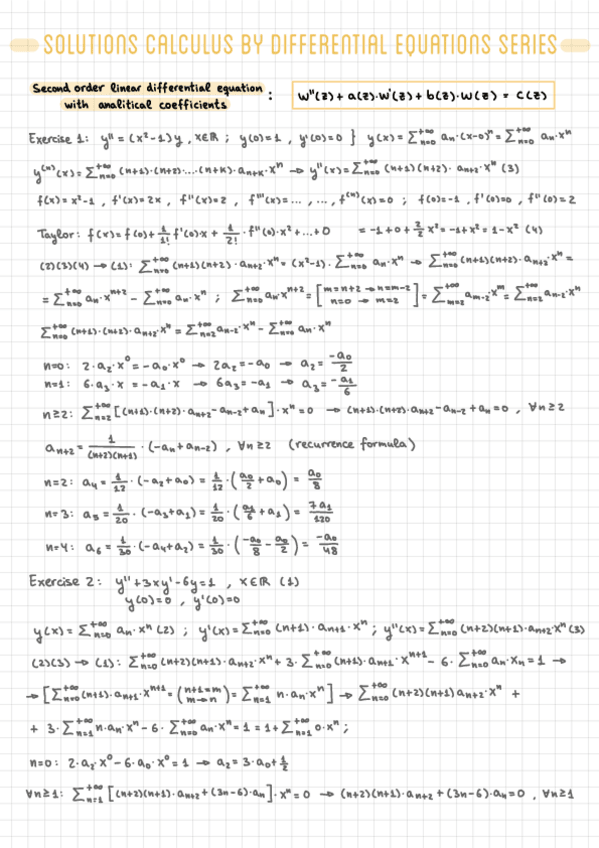 SOLUTIONS CALCULUS BY DIFFERENTIAL EQUATIONS SERIES
Second order linear differential equation
with analitical coefficients : W''(z) + a(z)·W'(z) + b(z)·W(z) = C(z)
Exercise 1: y'' = (x²-1)y , x∈ℝ ; y(0)=1 , y'(0)=0 } y(x) = ∑ₙ₌₀⁺∞ aₙ·(x-0)ⁿ = ∑ₙ₌₀⁺∞ aₙ·xⁿ
y⁽ⁿ⁾(x) = ∑ₙ₌₀⁺∞ (n+1)·(n+2)·...·(n+k)·aₙ₊ₖ·xⁿ → y''(x) = ∑ₙ₌₀⁺∞ (n+1)(n+2)·aₙ₊₂·xⁿ (3)
f(x) = x²-1 , f'(x) = 2x , f''(x) = 2 , f'''(x) = ... , ... , f⁽ⁿ⁾(x) = 0 ; f(0)=-1 , f'(0)=0 , f''(0) = 2
Taylor: f(x) = f(0) + 1/1! f'(0)·x + 1/2! · f''(0)·x² + ... + 0 = -1 + 0 + 2/2 x² = -1 + x² = 1 - x² (4)
(2)(3)(4) → (1): ∑ₙ₌₀⁺∞ (n+1)(n+2)·aₙ₊₂·xⁿ = (x²-1)·∑ₙ₌₀⁺∞ aₙ·xⁿ → ∑ₙ₌₀⁺∞ (n+1)(n+2)·aₙ₊₂·xⁿ =
= ∑ₙ₌₀⁺∞ aₙ·xⁿ⁺² - ∑ₙ₌₀⁺∞ aₙ·xⁿ ; ∑ₙ₌₀⁺∞ aₙ·xⁿ⁺² = [m=n+2 → n=m-2 n=0 → m=2] = ∑ₘ₌₂⁺∞ aₘ₋₂·xᵐ = ∑ₙ₌₂⁺∞ aₙ₋₂·xⁿ
∑ₙ₌₀⁺∞ (n+1)·(n+2)·aₙ₊₂·xⁿ = ∑ₙ₌₂⁺∞ aₙ₋₂·xⁿ - ∑ₙ₌₀⁺∞ aₙ·xⁿ
n=0: 2·a₂·x⁰ = -a₀·x⁰ → 2a₂ = -a₀ → a₂ = -a₀/2
n=1: 6·a₃·x = -a₁·x → 6a₃ = -a₁ → a₃ = -a₁/6
n≥2: ∑ₙ₌₂⁺∞ [(n+1)·(n+2)·aₙ₊₂ - aₙ₋₂ + aₙ]·xⁿ = 0 → (n+1)·(n+2)·aₙ₊₂ - aₙ₋₂ + aₙ = 0 , ∀n≥2
aₙ₊₂ = 1/(n+2)(n+1) · (-aₙ + aₙ₋₂) , ∀n≥2 (recurrence formula)
n=2: a₄ = 1/12 · (-a₂ + a₀) = 1/12 · (a₀/2 + a₀) = a₀/8
n=3: a₅ = 1/20 · (-a₃ + a₁) = 1/20 · (a₁/6 + a₁) = 7a₁/120
n=4: a₆ = 1/30 · (-a₄ + a₂) = 1/30 · (-a₀/8 - a₀/2) = -a₀/48
Exercise 2: y'' + 3xy' - 6y = 1 , x∈ℝ (1)
y(0)=0 , y'(0)=0
y(x) = ∑ₙ₌₀⁺∞ aₙ·xⁿ (2) ; y'(x) = ∑ₙ₌₀⁺∞ (n+1)·aₙ₊₁·xⁿ ; y''(x) = ∑ₙ₌₀⁺∞ (n+2)(n+1)·aₙ₊₂·xⁿ (3)
(2)(3) → (1): ∑ₙ₌₀⁺∞ (n+2)(n+1)·aₙ₊₂·xⁿ + 3·∑ₙ₌₀⁺∞ (n+1)·aₙ₊₁·xⁿ⁺¹ - 6·∑ₙ₌₀⁺∞ aₙ·xₙ = 1 →
→ [∑ₙ₌₀⁺∞ (n+1)·aₙ₊₁·xⁿ⁺¹ = (n+1=m m→n) = ∑ₙ₌₁⁺∞ n·aₙ·xⁿ] → ∑ₙ₌₀⁺∞ (n+2)(n+1)aₙ₊₂·xⁿ +
+ 3·∑ₙ₌₁⁺∞ n·aₙ·xⁿ - 6·∑ₙ₌₀⁺∞ aₙ·xⁿ = 1 = 1 + ∑ₙ₌₁⁺∞ 0·xⁿ ;
n=0: 2·a₂·x⁰ - 6·a₀·x⁰ = 1 → a₂ = 3·a₀ + 1/2
∀n≥1: ∑ₙ₌₁⁺∞ [(n+2)(n+1)·aₙ₊₂ + (3n-6)·aₙ]·xⁿ = 0 → (n+2)(n+1)·aₙ₊₂ + (3n-6)·aₙ = 0 , ∀n≥1